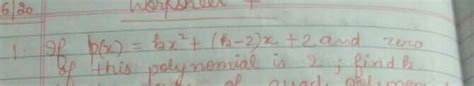 6/20 Worksheet
1. If p(x) = kx² + (k-2)x + 2 and zero
of this polynomial is 2 ; find k